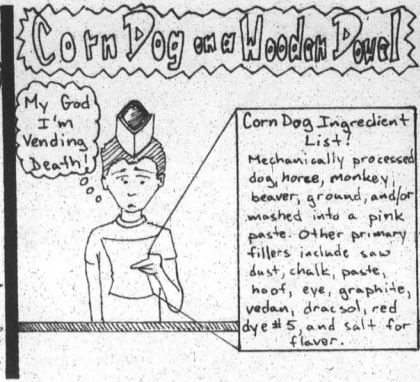 Corn Dog on a Wooden Dowel
My God
I'm
Vending
Death!
Corn Dog Ingredient
List:
Mechanically processed
dog, horse, monkey,
beaver, ground, and/or
mashed into a pink
paste. Other primary
fillers include saw
dust, chalk, paste,
hoof, eye, graphite,
vedan, dracsol, red
dye #5, and salt for
flaver.